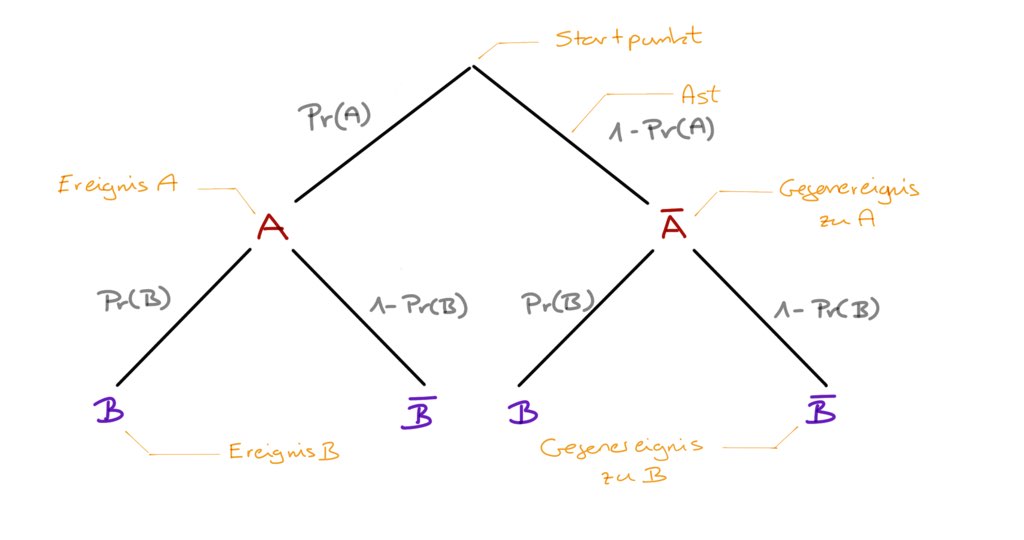 Startpunkt
Ast
Pr(A)
1-Pr(A)
Ereignis A
Gegenereignis
zu A
A
A̅
Pr(B)
1-Pr(B)
Pr(B)
1-Pr(B)
B
B̅
B
B̅
Ereignis B
Gegenereignis
zu B